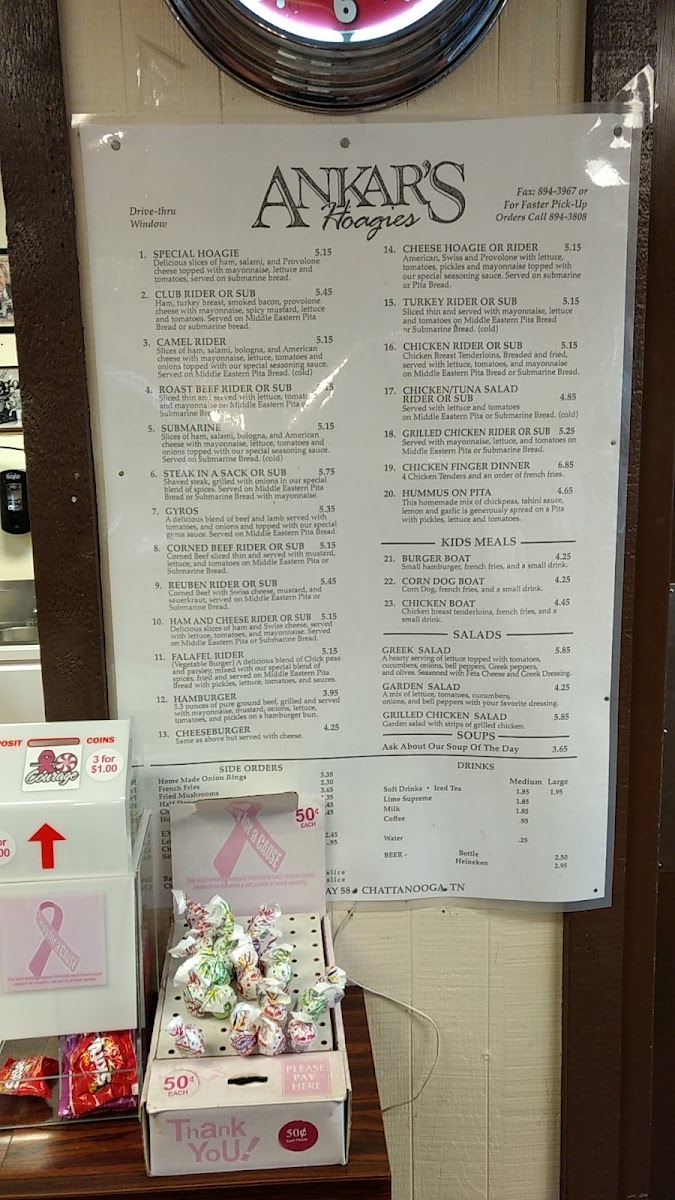 6
ANKAR'S
Hoagies
Drive-thru
Window
Fax: 894-3967 or
For Faster Pick-Up
Orders Call 894-3808
1. SPECIAL HOAGIE 5.15
Delicious slices of ham, salami, and Provolone
cheese topped with mayonnaise, lettuce and
tomatoes, served on submarine bread.
2. CLUB RIDER OR SUB 5.45
Ham, turkey breast, smoked bacon, provolone
cheese with mayonnaise, spicy mustard, lettuce
and tomatoes. Served on Middle Eastern Pita
Bread or submarine bread.
3. CAMEL RIDER 5.15
Slices of ham, salami, bologna, and American
cheese with mayonnaise, lettuce, tomatoes and
onions topped with our special seasoning sauce.
Served on Middle Eastern Pita Bread. (cold)
4. ROAST BEEF RIDER OR SUB
Sliced thin and served with lettuce,
and mayonnaise on Middle Eastern Pita or
Submarine
5. SUBMARINE 5.15
Slices of ham, salami, bologna, and American
cheese with mayonnaise, lettuce, tomatoes and
onions topped with our special seasoning sauce.
Served on Submarine Bread. (cold)
6. STEAK IN A SACK OR SUB 5.75
Shaved steak, grilled with onions in our special
blend of spices. Served on Middle Eastern Pita
Bread or Submarine Bread with mayonnaise.
7. GYROS 5.35
A delicious blend of beef and lamb served with
tomatoes, and onions and topped with our special
gyros sauce. Served on Middle Eastern Pita Bread.
8. CORNED BEEF RIDER OR SUB 5.15
Corned Beef sliced thin and served with mustard,
lettuce, and tomatoes on Middle Eastern Pita or
Submarine Bread.
9. REUBEN RIDER OR SUB 5.45
Corned Beef with Swiss cheese, mustard, and
sauerkraut, served on Middle Eastern Pita or
Submarine Bread.
10. HAM AND CHEESE RIDER OR SUB 5.15
Delicious slices of ham and Swiss cheese, served
with lettuce, tomatoes, and mayonnaise. Served
on Middle Eastern Pita or Submarine Bread.
11. FALAFEL RIDER 5.15
(Vegetable Burger) A delicious blend of Chick peas
and parsley, mixed with our special blend of
spices, fried and served on Middle Eastern Pita
Bread with pickles, lettuce, tomatoes, and sauces.
12. HAMBURGER 3.95
5.3 ounces of pure ground beef, grilled and served
with mayonnaise, mustard, onions, lettuce,
tomatoes, and pickles on a hamburger bun.
13. CHEESEBURGER 4.25
Same as above but served with cheese.
14. CHEESE HOAGIE OR RIDER 5.15
American, Swiss and Provolone with lettuce,
tomatoes, pickles and mayonnaise topped with
our special seasoning sauce. Served on submarine
or Pita Bread.
15. TURKEY RIDER OR SUB 5.15
Sliced thin and served with mayonnaise, lettuce
and tomatoes on Middle Eastern Pita Bread
or Submarine Bread. (cold)
16. CHICKEN RIDER OR SUB 5.15
Chicken Breast Tenderloins, Breaded and fried,
served with lettuce, tomatoes, and mayonnaise
on Middle Eastern Pita Bread or Submarine Bread.
17. CHICKEN/TUNA SALAD
RIDER OR SUB 4.85
Served with lettuce and tomatoes
on Middle Eastern Pita or Submarine Bread. (cold)
18. GRILLED CHICKEN RIDER OR SUB 5.25
Served with mayonnaise, lettuce, and tomatoes on
Middle Eastern Pita or Submarine Bread.
19. CHICKEN FINGER DINNER 6.85
4 Chicken Tenders and an order of french fries.
20. HUMMUS ON PITA 4.65
This homemade mix of chickpeas, tahini sauce,
lemon and garlic is generously spread on a Pita
with pickles, lettuce and tomatoes.
KIDS MEALS
21. BURGER BOAT 4.25
Small hamburger, french fries, and a small drink.
22. CORN DOG BOAT 4.25
Corn Dog, french fries, and a small drink.
23. CHICKEN BOAT 4.45
Chicken breast tenderloins, french fries, and a
small drink.
SALADS
GREEK SALAD 5.85
A hearty serving of lettuce topped with tomatoes,
cucumbers, onions, bell peppers, Greek peppers,
and olives. Seasoned with Feta Cheese and Greek Dressing.
GARDEN SALAD 4.25
A mix of lettuce, tomatoes, cucumbers,
onions, and bell peppers with your favorite dressing.
GRILLED CHICKEN SALAD 5.85
Garden salad with strips of grilled chicken.
SOUPS
Ask About Our Soup Of The Day 3.65
SIDE ORDERS
Home Made Onion Rings 3.35
French Fries 2.30
Fried Mushrooms 3.65
DRINKS
Medium Large
Soft Drinks • Iced Tea 1.85 1.95
Lime Supreme 1.85
Milk 1.85
Coffee .95
Water .25
BEER - Bottle 2.50
Heineken 2.95
slice
slice
58 CHATTANOOGA, TN
COINS
Courage
3 for
$1.00
50¢
EACH
for a CAUSE
50¢
EACH
PLEASE
PAY
HERE
Thank
You!
50¢